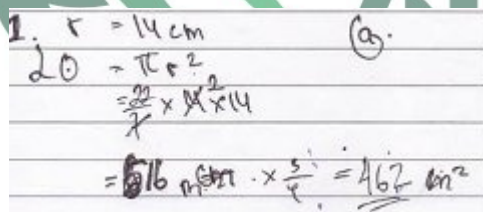 1. r = 14 cm (a).
LO = π r²
= 22/7 × 14² × 14
= 616 × 3/4 = 462 cm²